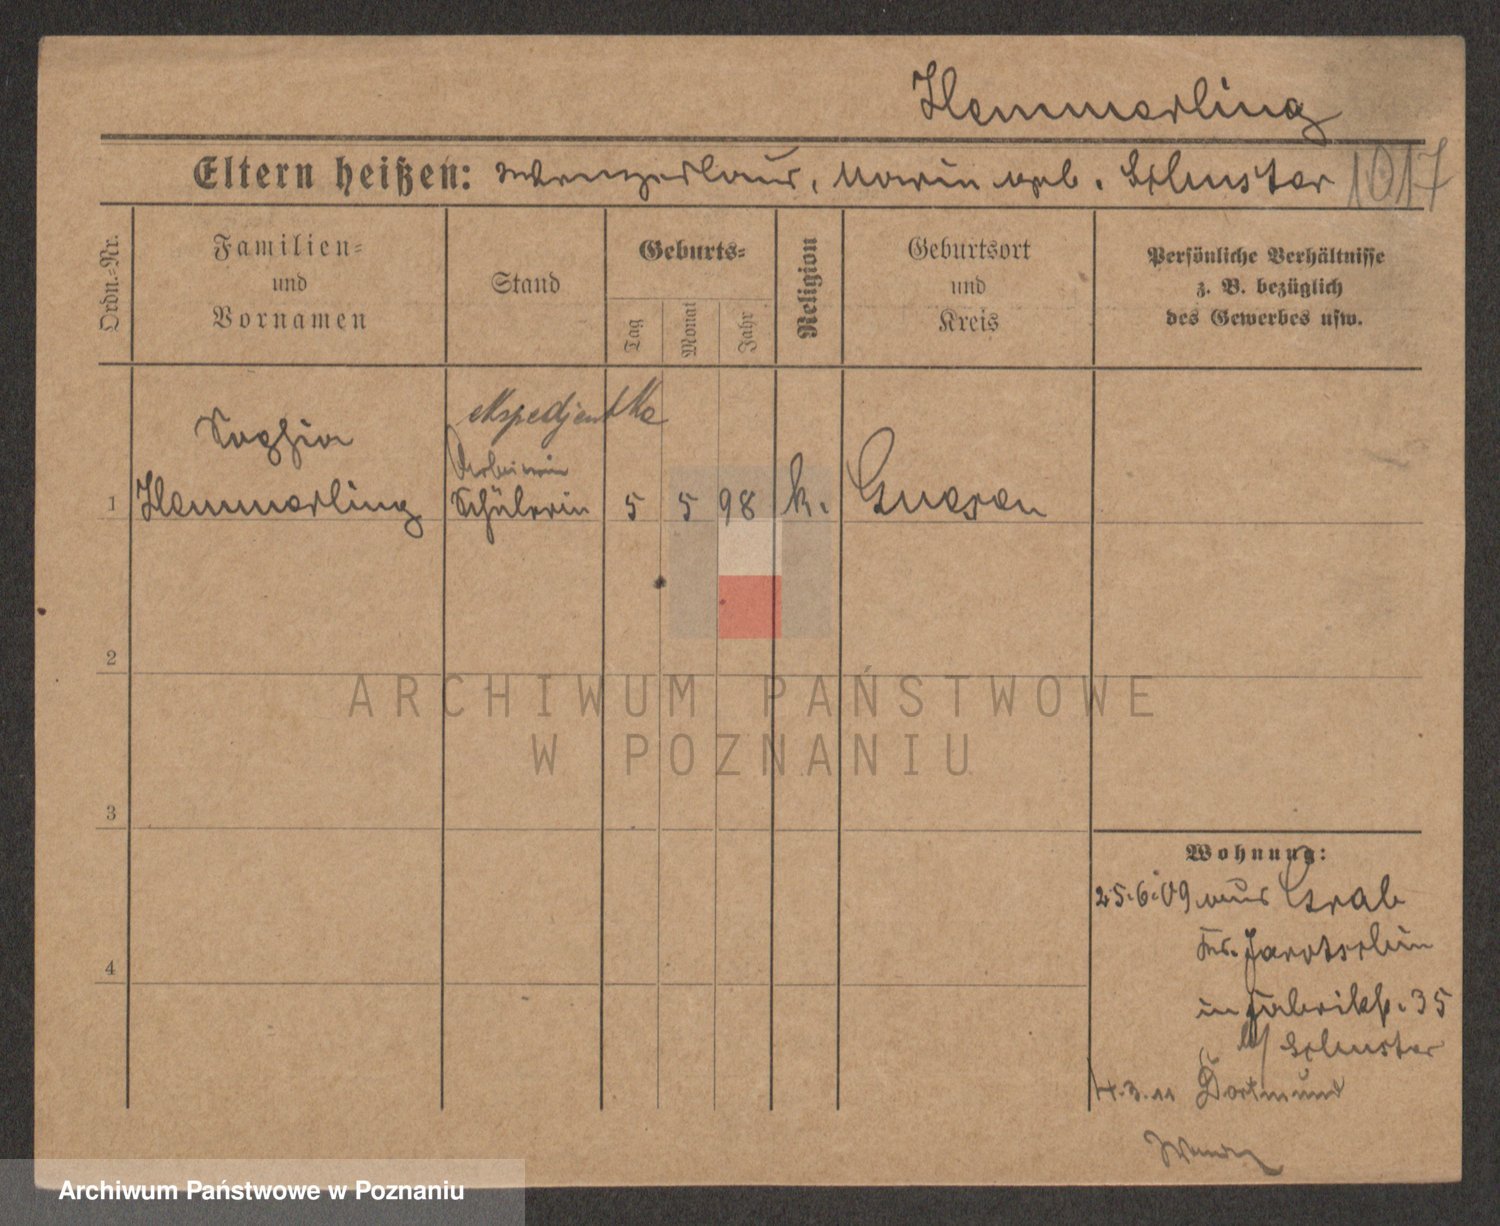 Hemmerling
Eltern heißen: Wenzeslaus, Marie geb. Schuster 1017
Ordn.=Nr.
Familien=
und
Vornamen
Stand
Geburts=
Tag
Monat
Jahr
Religion
Geburtsort
und
Kreis
Persönliche Verhältnisse
z. B. bezüglich
des Gewerbes usw.
ekspedjentka
Sophia
Arbeiterin
1 Hemmerling Schülerin 5 5 98 k. Gnesen
2
ARCHIWUM PAŃSTWOWE
W POZNANIU
3
Wohnung:
25.6.09 aus Grab
Krs. Jarotschin
in Fabrikst. 35
b/ Schuster
4
4.3.11 Dortmund
Archiwum Państwowe w Poznaniu